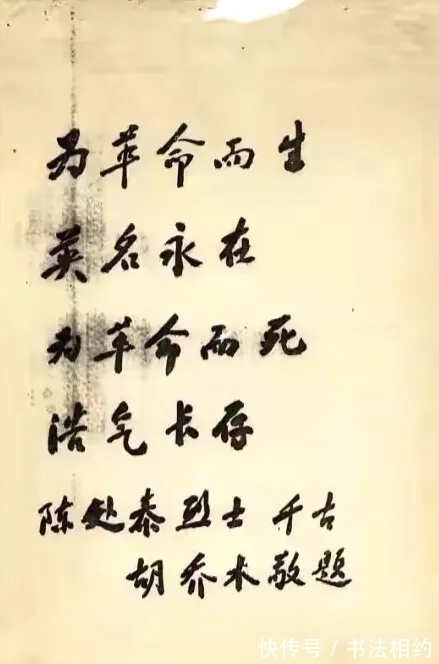 为革命而生
英名永在
为革命而死
浩气长存
陈处泰烈士 千古
胡乔木敬题
快传号 / 书法相约